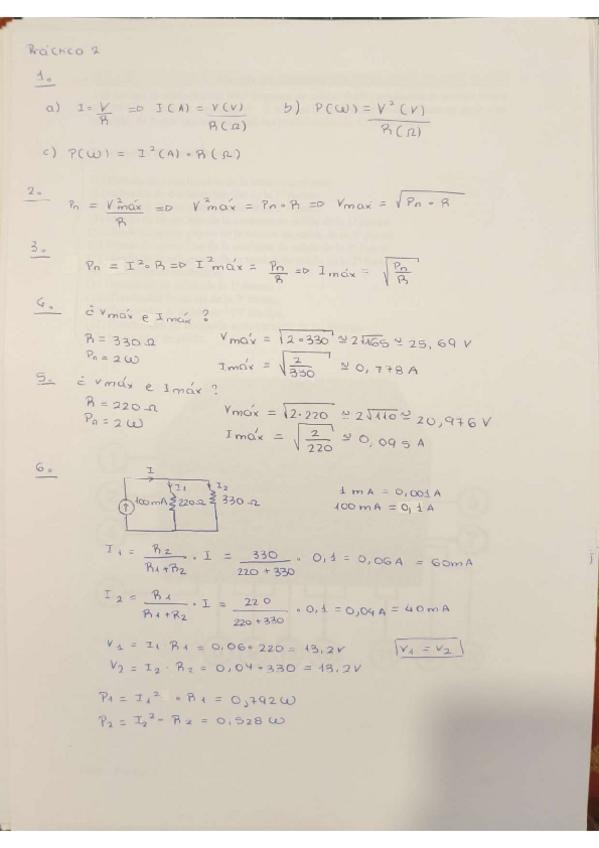 Práctica 2
1.
a) I = V/R => I(A) = V(V)/R(Ω) b) P(W) = V²(V)/R(Ω)
c) P(W) = I²(A) · R(Ω)
2.
Pn = V²máx/R => V²máx = Pn · R => Vmax = √(Pn · R)
3.
Pn = I² · R => I²máx = Pn/R => Imáx = √(Pn/R)
4. ¿ Vmáx e Imáx ?
R = 330 Ω Vmáx = √(2 · 330) ≃ 2√165 ≃ 25,69 V
Pn = 2W Imáx = √(2/330) ≃ 0,778 A
5. ¿ Vmáx e Imáx ?
R = 220 Ω Vmáx = √(2 · 220) ≃ 2√110 ≃ 20,976 V
Pn = 2W Imáx = √(2/220) ≃ 0,095 A
6.
I
I1 I2
100mA 220Ω 330Ω
1 mA = 0,001A
100mA = 0,1A
I1 = R2/(R1+R2) · I = 330/(220+330) · 0,1 = 0,06A = 60mA
I2 = R1/(R1+R2) · I = 220/(220+330) · 0,1 = 0,04A = 40mA
V1 = I1 R1 = 0,06 · 220 = 13,2V V1 = V2
V2 = I2 · R2 = 0,04 · 330 = 13,2V
P1 = I1² · R1 = 0,792W
P2 = I2² - R2 = 0,528W